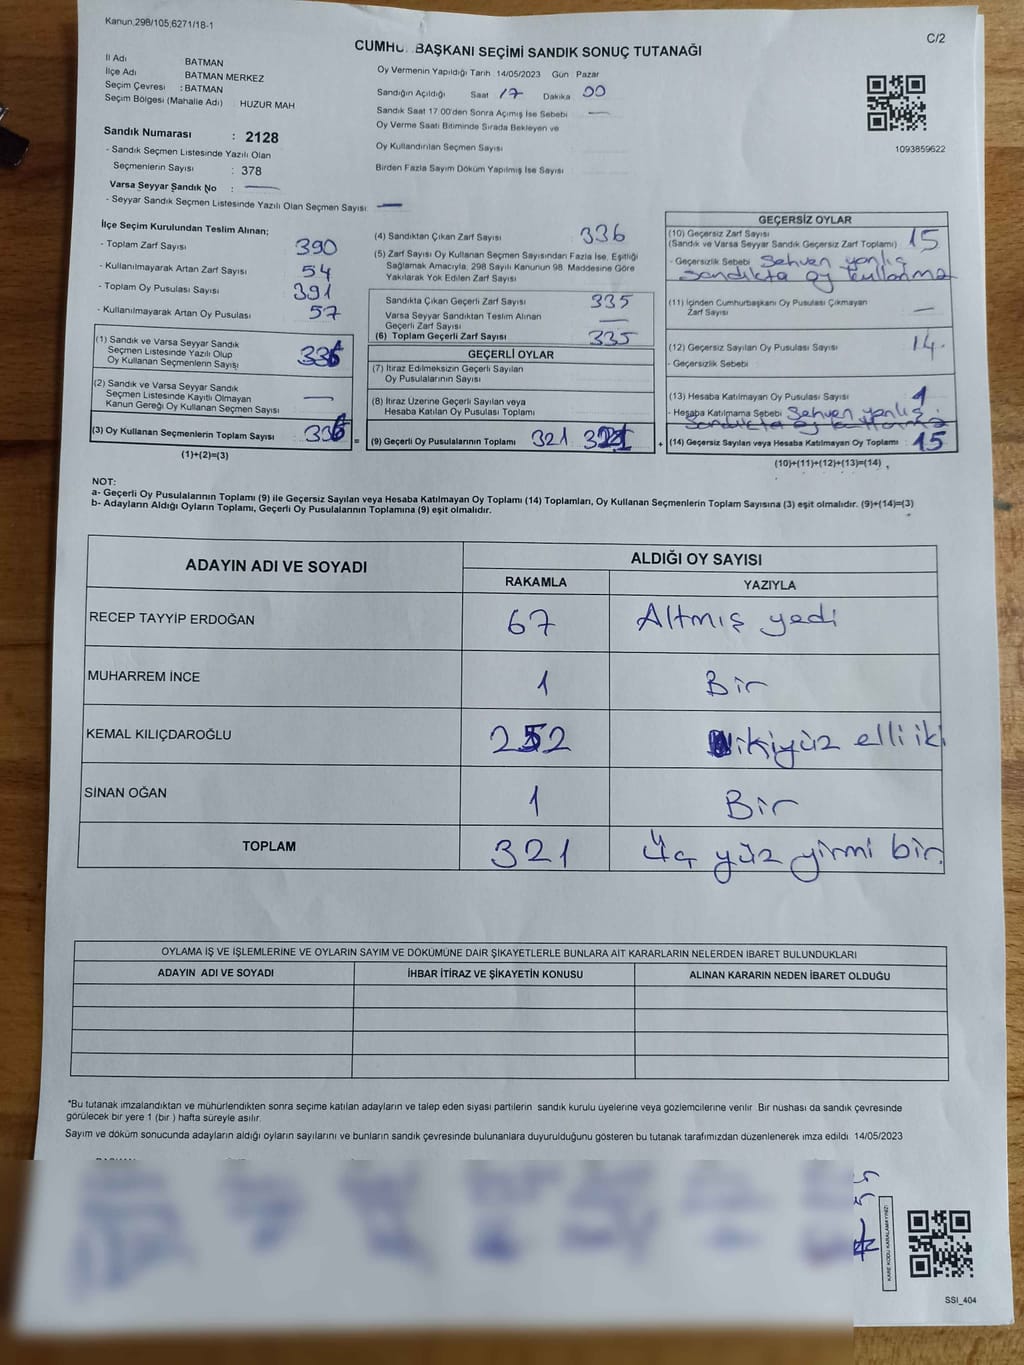 Kanun,298/105,6271/18-1
C/2
CUMHU BAŞKANI SEÇİMİ SANDIK SONUÇ TUTANAĞI
İl Adı BATMAN
İlçe Adı BATMAN MERKEZ
Seçim Çevresi : BATMAN
Seçim Bölgesi (Mahalle Adı) HUZUR MAH
Sandık Numarası : 2128
- Sandık Seçmen Listesinde Yazılı Olan
Seçmenlerin Sayısı : 378
Varsa Seyyar Sandık No : —
- Seyyar Sandık Seçmen Listesinde Yazılı Olan Seçmen Sayısı —
Oy Vermenin Yapıldığı Tarih 14/05/2023 Gün Pazar
Sandığın Açıldığı Saat 17 Dakika 00
Sandık Saat 17 00'den Sonra Açımış İse Sebebi —
Oy Verme Saati Bitiminde Sırada Bekleyen ve
Oy Kullandırılan Seçmen Sayısı
Birden Fazla Sayım Döküm Yapılmış İse Sayısı
1093859622
İlçe Seçim Kurulundan Teslim Alınan;
- Toplam Zarf Sayısı 390
- Kullanılmayarak Artan Zarf Sayısı 54
- Toplam Oy Pusulası Sayısı 391
- Kullanılmayarak Artan Oy Pusulası 57
(1) Sandık ve Varsa Seyyar Sandık
Seçmen Listesinde Yazılı Olup
Oy Kullanan Seçmenlerin Sayısı 336
(2) Sandık ve Varsa Seyyar Sandık
Seçmen Listesinde Kayıtlı Olmayan
Kanun Gereği Oy Kullanan Seçmen Sayısı —
(3) Oy Kullanan Seçmenlerin Toplam Sayısı 336 =
(1)+(2)=(3)
(4) Sandıktan Çıkan Zarf Sayısı 336
(5) Zarf Sayısı Oy Kullanan Seçmen Sayısından Fazla İse, Eşitliği
Sağlamak Amacıyla, 298 Sayılı Kanunun 98. Maddesine Göre
Yakılarak Yok Edilen Zarf Sayısı
Sandıkta Çıkan Geçerli Zarf Sayısı 335
Varsa Seyyar Sandıktan Teslim Alınan
Geçerli Zarf Sayısı —
(6) Toplam Geçerli Zarf Sayısı 335
GEÇERLİ OYLAR
(7) İtiraz Edilmeksizin Geçerli Sayılan
Oy Pusulalarının Sayısı
(8) İtiraz Üzerine Geçerli Sayılan veya
Hesaba Katılan Oy Pusulası Toplamı
(9) Geçerli Oy Pusulalarının Toplamı 321 321 +
GEÇERSİZ OYLAR
(10) Geçersiz Zarf Sayısı
(Sandık ve Varsa Seyyar Sandık Geçersiz Zarf Toplamı) 15
- Geçersizlik Sebebi Sehven yanlış
sandıkta oy kullanma
(11) İçinden Cumhurbaşkanı Oy Pusulası Çıkmayan
Zarf Sayısı —
(12) Geçersiz Sayılan Oy Pusulası Sayısı 14.
- Geçersizlik Sebebi
(13) Hesaba Katılmayan Oy Pusulası Sayısı 1
- Hesaba Katılmama Sebebi Sehven yanlış
Sandıkta oy kullanma
(14) Geçersiz Sayılan veya Hesaba Katılmayan Oy Toplamı : 15
(10)+(11)+(12)+(13)=(14)
NOT:
a- Geçerli Oy Pusulalarının Toplamı (9) ile Geçersiz Sayılan veya Hesaba Katılmayan Oy Toplamı (14) Toplamları, Oy Kullanan Seçmenlerin Toplam Sayısına (3) eşit olmalıdır. (9)+(14)=(3)
b- Adayların Aldığı Oyların Toplamı, Geçerli Oy Pusulalarının Toplamına (9) eşit olmalıdır.
ADAYIN ADI VE SOYADI ALDIĞI OY SAYISI
RAKAMLA YAZIYLA
RECEP TAYYİP ERDOĞAN 67 Altmış yedi
MUHARREM İNCE 1 Bir
KEMAL KILIÇDAROĞLU 252 ikiyüz elli iki
SİNAN OĞAN 1 Bir
TOPLAM 321 Üç yüz yirmi bir
OYLAMA İŞ VE İŞLEMLERİNE VE OYLARIN SAYIM VE DÖKÜMÜNE DAİR ŞİKAYETLERLE BUNLARA AİT KARARLARIN NELERDEN İBARET BULUNDUKLARI
ADAYIN ADI VE SOYADI İHBAR İTİRAZ VE ŞİKAYETİN KONUSU ALINAN KARARIN NEDEN İBARET OLDUĞU
*Bu tutanak imzalandıktan ve mühürlendikten sonra seçime katılan adayların ve talep eden siyasi partilerin sandık kurulu üyelerine veya gözlemcilerine verilir Bir nüshası da sandık çevresinde
görülecek bir yere 1 (bir ) hafta süreyle asılır.
Sayım ve döküm sonucunda adayların aldığı oyların sayılarını ve bunların sandık çevresinde bulunanlara duyurulduğunu gösteren bu tutanak tarafımızdan düzenlenerek imza edildi 14/05/2023
KARE KODU KARALAMAYINIZ!
SSI_404